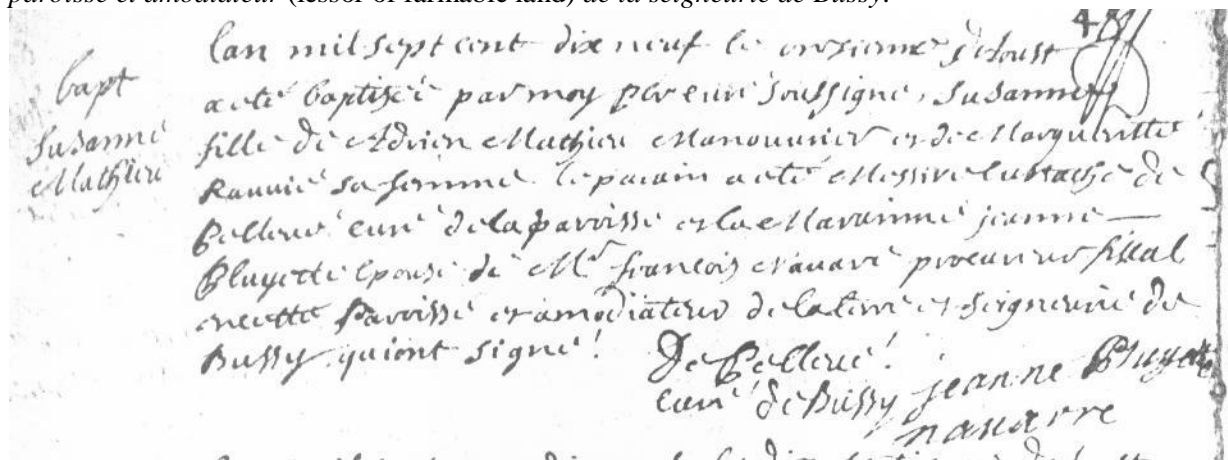 paroisse et amodiateur (lessor of farmable land) de la seigneurie de Bussy.
4
lan mil sept cent dix neuf le onzieme daoust
bapt
a eté baptizée par moy soussigné, Susanne
Susanne
fille de Adrien Mathieu Manouvrier et de Margueritte
Mathieu
sa femme le parain a eté Messire Eustache de
Pelleué curé de la paroisse et la Maraimne jeanne
Pluyette epouse de Mr francois navare procureur fiscal
en cette Paroisse et amodiateur de la terre et Seigneurie de
Bussy qui ont signé.
De Pelleué
curé de Bussy jeanne Pluyette
navarre